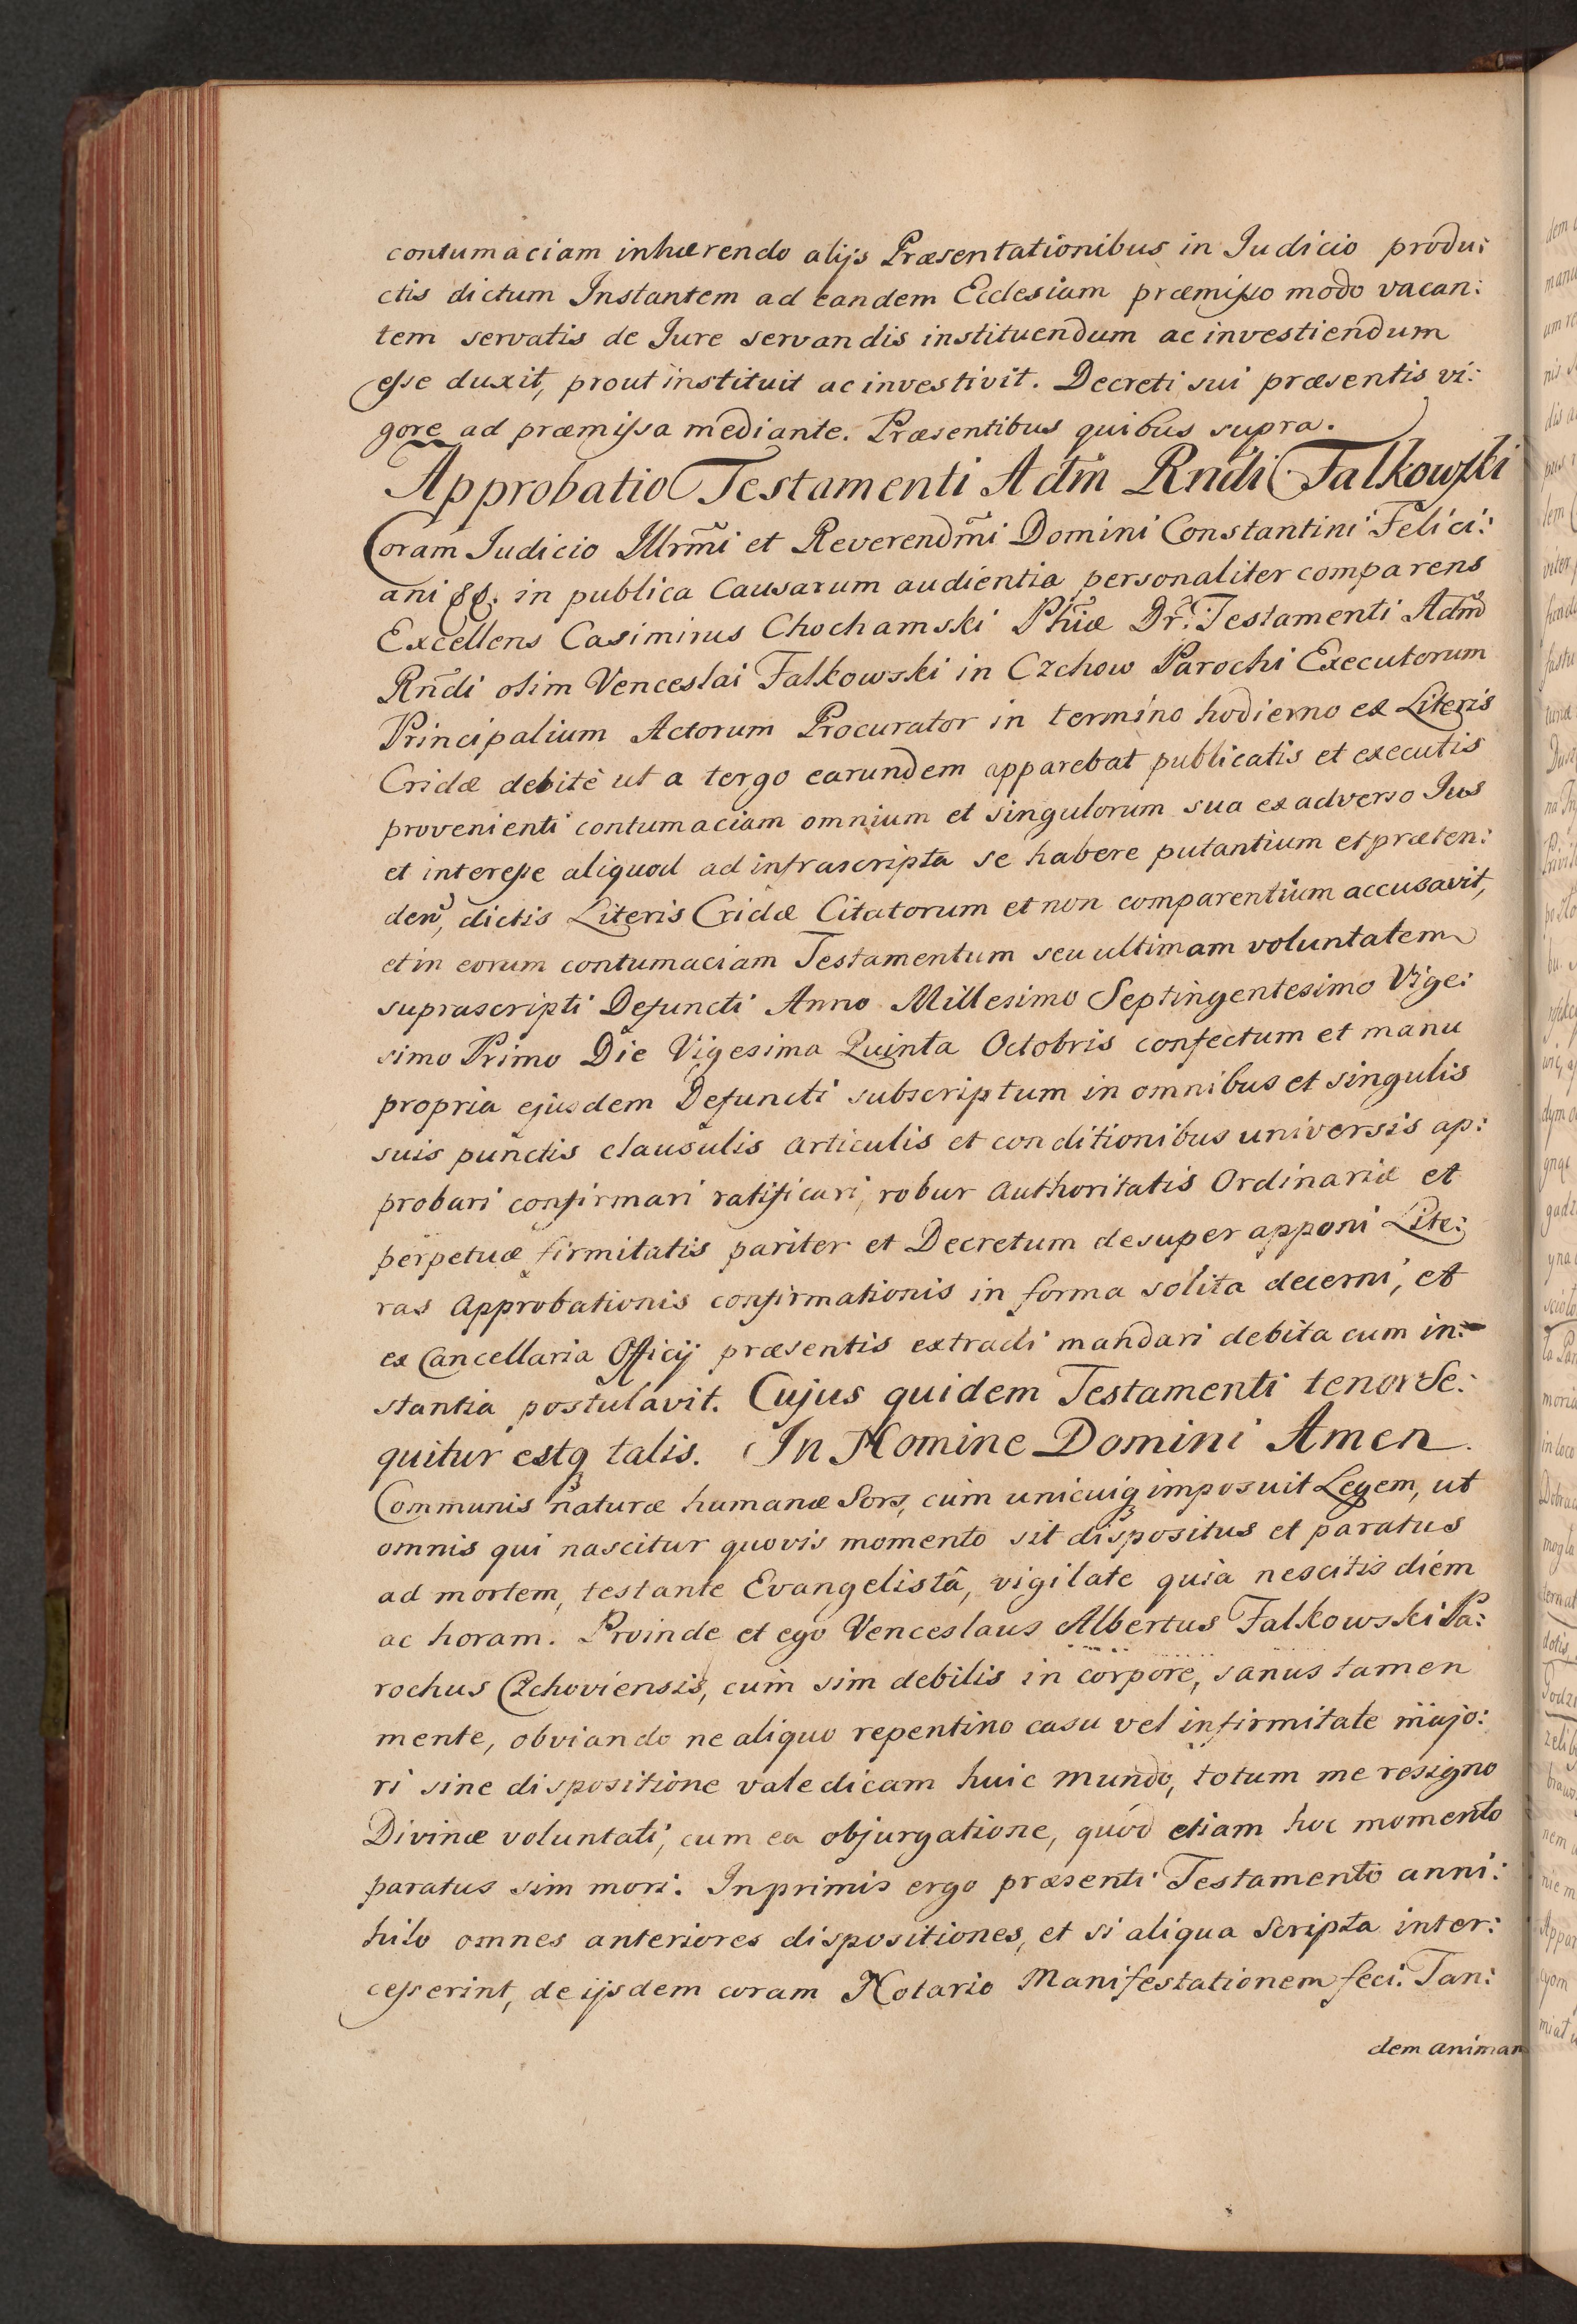 contumaciam inhærendo alijs Præsentationibus in Iudicio produ:
ctis dictum Instantem ad eandem Ecclesiam præmisso modo vacan:
tem servatis de Iure servandis instituendum ac investiendum
esse duxit, prout instituit ac investivit. Decreti sui præsentis vi:
gore ad præmissa mediante. Præsentibus quibus supra.
Approbatio Testamenti Adm̃ Rñdi Falkowski
Coram Iudicio Illrm̃i et Reverendm̃i Domini Constantini Felici:
ani &&. in publica Causarum audientia personaliter comparens
Excellens Casimirus Chochamski Phĩæ Dr̃. Testamenti Adm̃
Rñdi olim Venceslai Falkowski in Czchow Parochi Executorum
Principalium Actorum Procurator in termino hodierno ex Literis
Cridæ debitè ut a tergo earundem apparebat publicatis et executis
provenienti contumaciam omnium et singulorum sua ex adverso Ius
et interesse aliquod ad infrascripta se habere putantium et præten:
deñ, dictis Literis Cridæ Citatorum et non comparentium accusavit,
et in eorum contumaciam Testamentum seu ultimam voluntatem
suprascripti Defuncti Anno Millesimo Septingentesimo Vige:
simo Primo Die Vigesima Quinta Octobris confectum et manu
propria ejusdem Defuncti subscriptum in omnibus et singulis
suis punctis clausulis articulis et conditionibus universis ap:
probari confirmari ratificari, robur Authoritatis Ordinariæ et
perpetuæ firmitatis pariter et Decretum desuper apponi Lite:
ras Approbationis confirmationis in forma solita decerni, et
ex Cancellaria Officij præsentis extradi mandari debita cum in:
stantia postulavit. Cujus quidem Testamenti tenor Se:
quitur estq talis. In Nomine Domini Amen.
Communis naturæ humanæ Sors, cùm unicuiq imposuit Legem, ut
omnis qui nascitur quovis momento sit dispositus et paratus
ad mortem, testante Evangelistâ, vigilate quia nescitis diem
ac horam. Proinde et ego Venceslaus Albertus Falkowski Pa:
rochus Czchoviensis, cùm sim debilis in corpore, sanus tamen
mente, obviando ne aliquo repentino casu vel infirmitate majo:
ri sine dispositione valedicam huic mundo, totum me resigno
Divinæ voluntati, cum ea objurgatione, quòd etiam hoc momento
paratus sim mori. Inprimis ergo præsenti Testamento anni:
hilo omnes anteriores dispositiones, et si aliqua Scripta inter:
cesserint, de ijsdem coram Notario Manifestationem feci. Tan:
dem animam